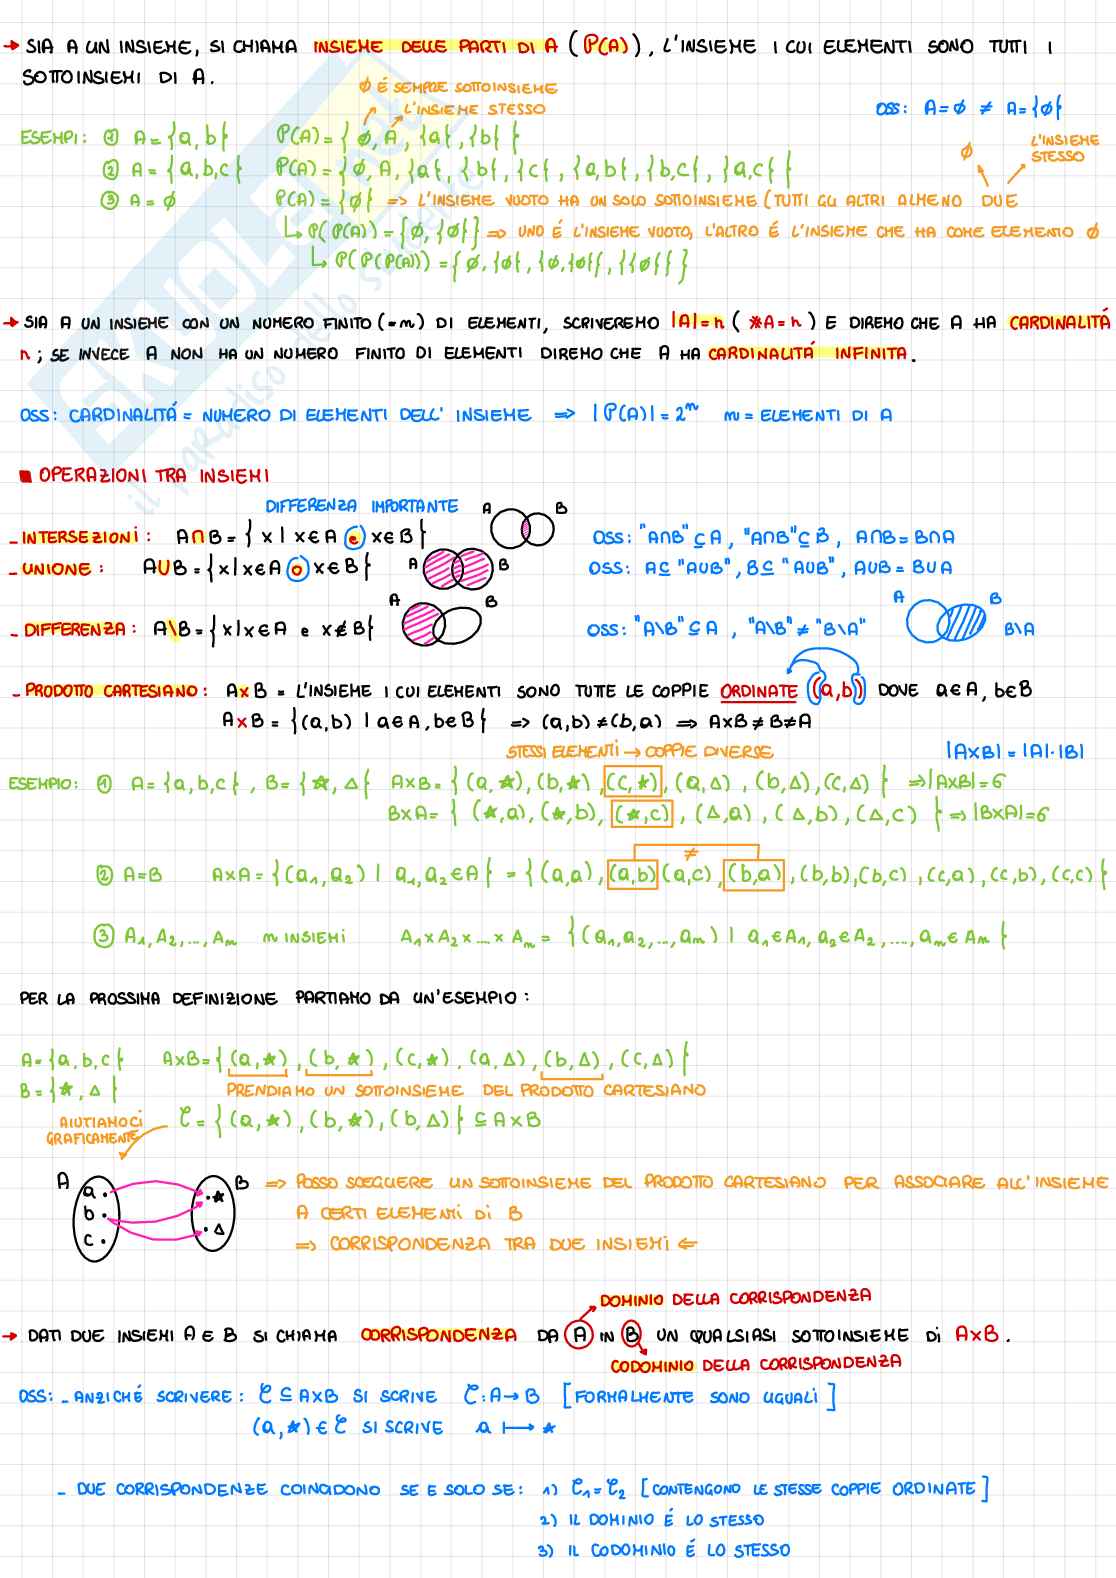 → SIA A UN INSIEME, SI CHIAMA INSIEME DELLE PARTI DI A (P(A)), L'INSIEME I CUI ELEMENTI SONO TUTTI I
SOTTOINSIEMI DI A.
∅ É SEMPRE SOTTOINSIEME
L'INSIEME STESSO
OSS: A=∅ ≠ A={∅}
ESEMPI: ① A={a,b} P(A)={∅,A,{a},{b}}
∅ L'INSIEME STESSO
② A={a,b,c} P(A)={∅,A,{a},{b},{c},{a,b},{b,c},{a,c}}
③ A=∅ P(A)={∅} => L'INSIEME VUOTO HA UN SOLO SOTTOINSIEME (TUTTI GLI ALTRI ALMENO DUE
↳ P(P(A))={∅,{∅}} => UNO É L'INSIEME VUOTO, L'ALTRO É L'INSIEME CHE HA COME ELEMENTO ∅
↳ P(P(P(A)))={∅,{∅},{∅,{∅}},{{∅}}}
→ SIA A UN INSIEME CON UN NUMERO FINITO (=m) DI ELEMENTI, SCRIVEREMO |A|=n (#A=n) E DIREMO CHE A HA CARDINALITÁ
n; SE INVECE A NON HA UN NUMERO FINITO DI ELEMENTI DIREMO CHE A HA CARDINALITÁ INFINITA.
OSS: CARDINALITÁ = NUMERO DI ELEMENTI DELL' INSIEME => |P(A)|=2^m m=ELEMENTI DI A
■ OPERAZIONI TRA INSIEMI
DIFFERENZA IMPORTANTE
- INTERSEZIONI: A∩B={x|x∈A e x∈B} A B OSS: "A∩B"⊆A, "A∩B"⊆B, A∩B=B∩A
- UNIONE: A∪B={x|x∈A o x∈B} A B OSS: A⊆"A∪B", B⊆"A∪B", A∪B=B∪A
- DIFFERENZA: A\B={x|x∈A e x∉B} A B OSS: "A\B"⊆A, "A\B"≠"B\A" A B B\A
- PRODOTTO CARTESIANO: A×B = L'INSIEME I CUI ELEMENTI SONO TUTTE LE COPPIE ORDINATE (a,b) DOVE a∈A, b∈B
A×B={(a,b)|a∈A,b∈B} => (a,b)≠(b,a) => A×B≠B≠A
STESSI ELEMENTI → COPPIE DIVERSE |A×B|=|A|·|B|
ESEMPIO: ① A={a,b,c}, B={★,△} A×B={(a,★),(b,★),(c,★),(a,△),(b,△),(c,△)} =>|A×B|=6
B×A={(★,a),(★,b),(★,c),(△,a),(△,b),(△,c)} =>|B×A|=6
≠
② A=B A×A={(a₁,a₂)|a₁,a₂∈A}={(a,a),(a,b)(a,c),(b,a),(b,b),(b,c),(c,a),(c,b),(c,c)}
③ A₁,A₂,...,Am m INSIEMI A₁×A₂×....×Am={(a₁,a₂,...,am)|a₁∈A₁,a₂∈A₂,....,am∈Am}
PER LA PROSSIMA DEFINIZIONE PARTIAMO DA UN'ESEMPIO:
A={a,b,c} A×B={(a,★),(b,★),(c,★),(a,△),(b,△),(c,△)}
B={★,△} PRENDIAMO UN SOTTOINSIEME DEL PRODOTTO CARTESIANO
AIUTIAMOCI GRAFICAMENTE C={(a,★),(b,★),(b,△)}⊆A×B
A a. b. c. B .★ .△ => POSSO SCEGLIERE UN SOTTOINSIEME DEL PRODOTTO CARTESIANO PER ASSOCIARE ALL'INSIEME
A CERTI ELEMENTI DI B
=> CORRISPONDENZA TRA DUE INSIEMI <=
DOMINIO DELLA CORRISPONDENZA
→ DATI DUE INSIEMI A E B SI CHIAMA CORRISPONDENZA DA A IN B UN QUALSIASI SOTTOINSIEME DI A×B.
CODOMINIO DELLA CORRISPONDENZA
OSS: - ANZICHÉ SCRIVERE: C⊆A×B SI SCRIVE C:A→B [FORMALMENTE SONO UGUALI]
(a,★)∈C SI SCRIVE a ⟼ ★
- DUE CORRISPONDENZE COINCIDONO SE E SOLO SE: 1) C₁=C₂ [CONTENGONO LE STESSE COPPIE ORDINATE]
2) IL DOMINIO É LO STESSO
3) IL CODOMINIO É LO STESSO
SKUOLA.net
il paradiso dello studente